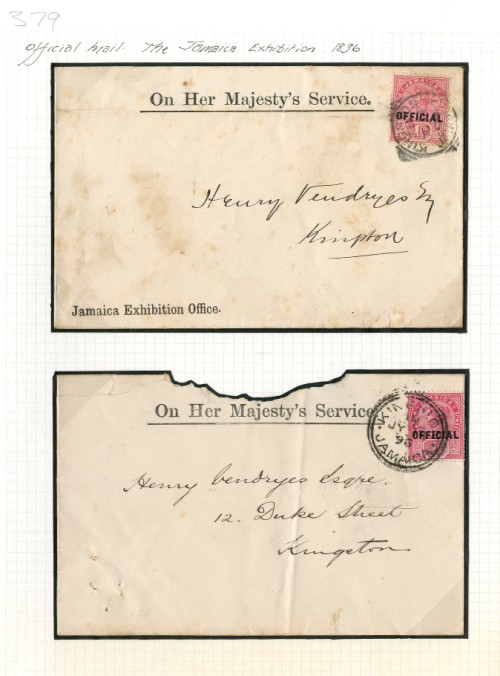 379
Official Mail. The Jamaica Exhibition 1896
On Her Majesty's Service.
OFFICIAL
Henry Vendryes Esq
Kingston
Jamaica Exhibition Office.
On Her Majesty's Service
OFFICIAL
JAMAICA
Henry Vendryes Esqre.
12. Duke Street
Kingston